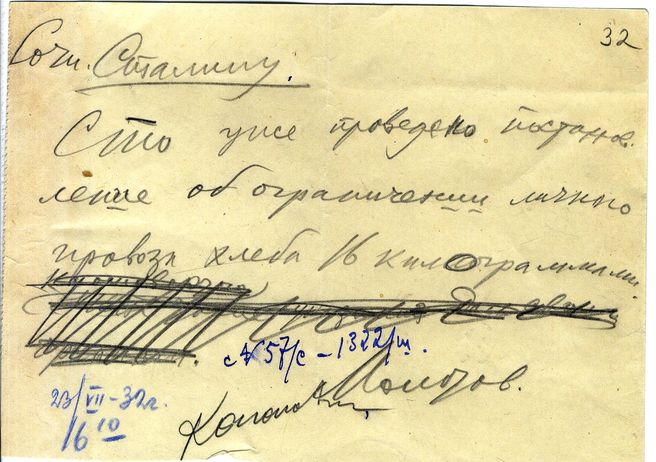 32
Сочи. Сталину.
Сто уже проведено постанов
ление об ограничении личного
провоза хлеба 16 килограммами.
с№57/с - 1322/ш.
Молотов.
23/VII-32г.
16 10